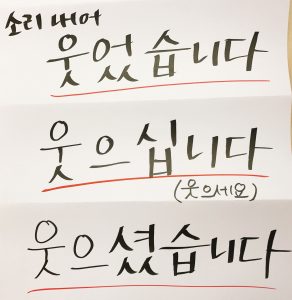 소리 내어
웃었습니다
웃으십니다
(웃으세요)
웃으셨습니다